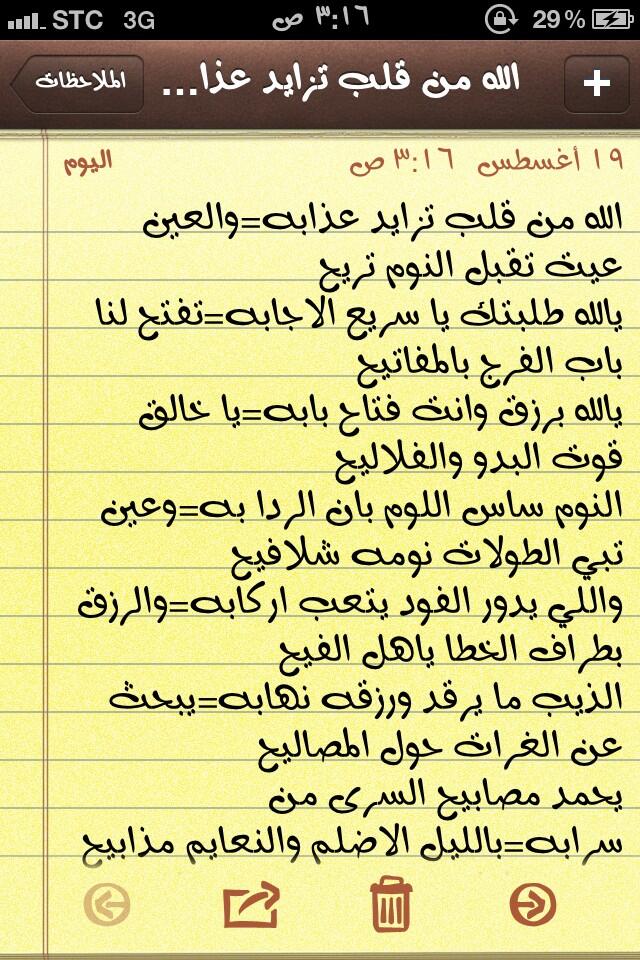 STC 3G ٣:١٦ ص 29%
الملاحظات الله من قلب تزايد عذا...
١٩ أغسطس ٣:١٦ ص اليوم
الله من قلب تزايد عذابه=والعين
عيت تقبل النوم تريح
يالله طلبتك يا سريع الاجابه=تفتح لنا
باب الفرج بالمفاتيح
يالله برزق وانت فتاح بابه=يا خالق
قوت البدو والفلاليح
النوم ساس اللوم بان الردا به=وعين
تبي الطولات نومه شلافيح
واللي يدور الفود يتعب اركابه=والرزق
بطراف الخطا ياهل الفيح
الذيب ما يرقد ورزقه نهابه=يبحث
عن الغرات حول المصاليح
يحمد مصابيح السرى من
سرابه=بالليل الاضلم والنعايم مذابيح